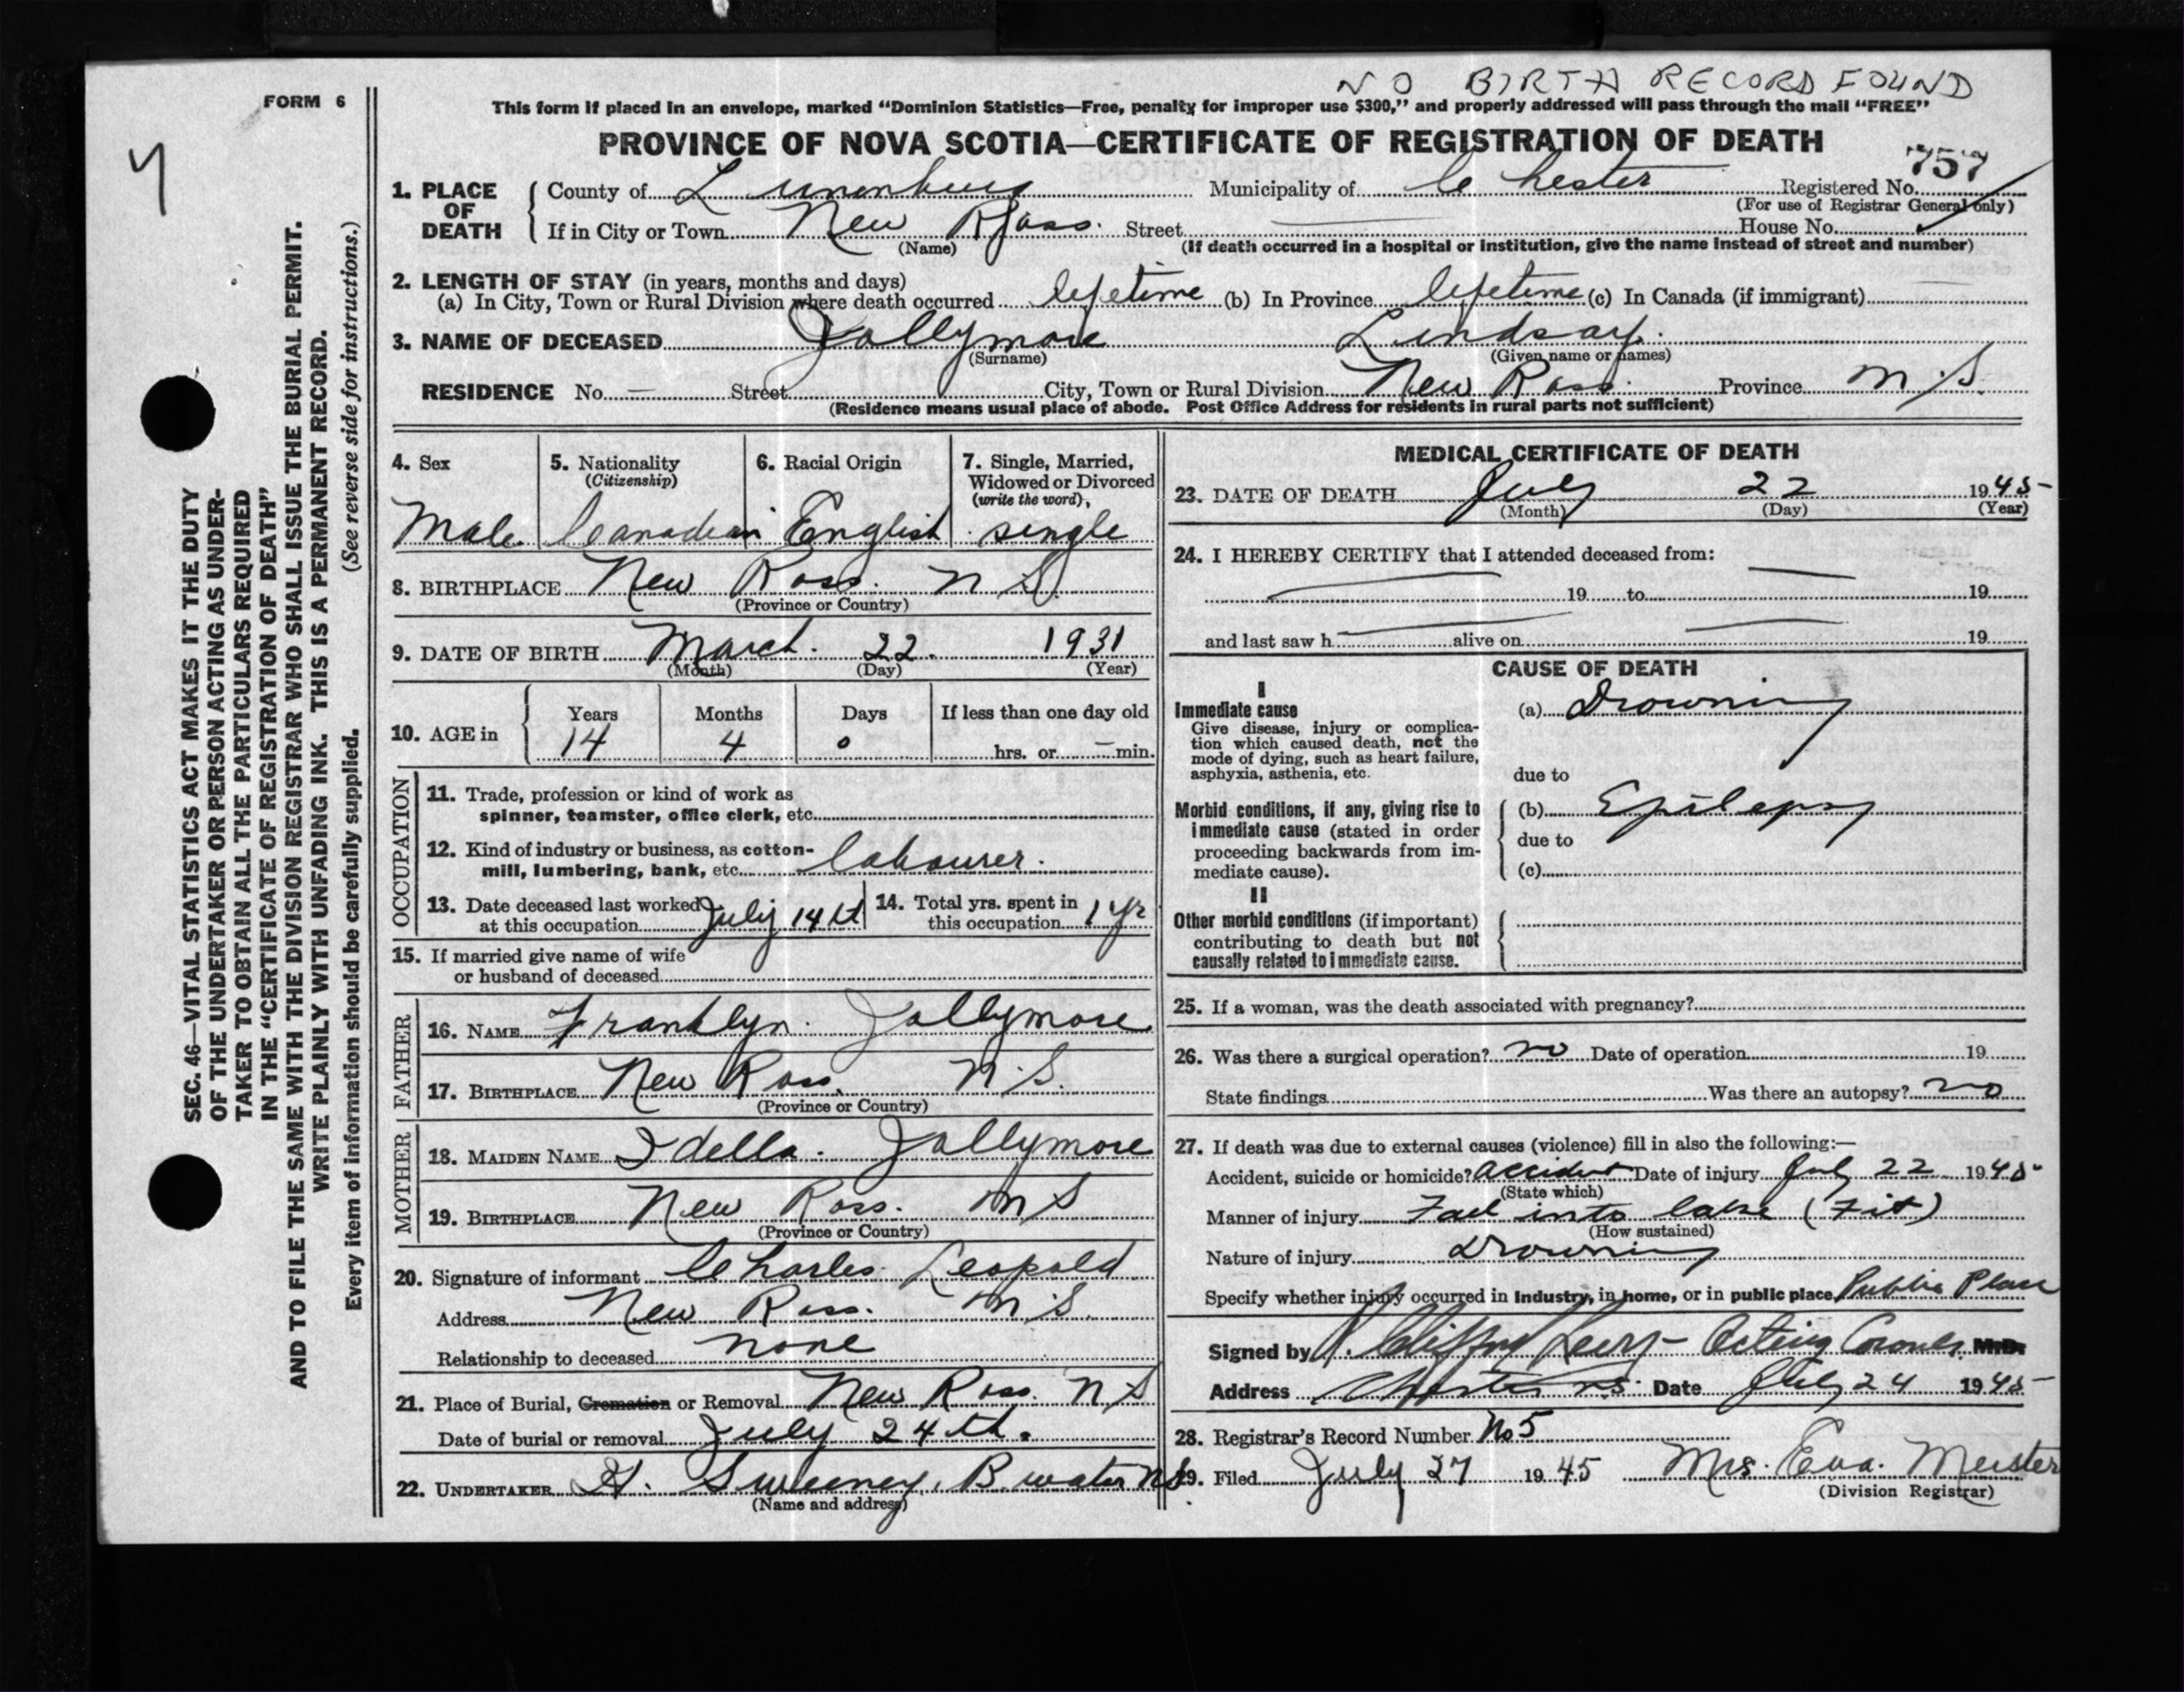 NO BIRTH RECORD FOUND
FORM 6
This form if placed in an envelope, marked “Dominion Statistics—Free, penalty for improper use $300,” and properly addressed will pass through the mail “FREE”
PROVINCE OF NOVA SCOTIA—CERTIFICATE OF REGISTRATION OF DEATH
757
1. PLACE OF DEATH
County of Lunenburg Municipality of Chester Registered No.
(For use of Registrar General only)
If in City or Town New Ross. Street House No.
(Name) (If death occurred in a hospital or institution, give the name instead of street and number)
2. LENGTH OF STAY (in years, months and days)
(a) In City, Town or Rural Division where death occurred lifetime (b) In Province lifetime (c) In Canada (if immigrant)
3. NAME OF DECEASED Jollymore Lindsay.
(Surname) (Given name or names)
RESIDENCE No. — Street City, Town or Rural Division New Ross. Province N.S.
(Residence means usual place of abode. Post Office Address for residents in rural parts not sufficient)
4. Sex
Male
5. Nationality
(Citizenship)
Canadian
6. Racial Origin
English
7. Single, Married,
Widowed or Divorced
(write the word)
single
8. BIRTHPLACE New Ross. N S.
(Province or Country)
9. DATE OF BIRTH March. 22. 1931
(Month) (Day) (Year)
10. AGE in
Years Months Days If less than one day old
14 4 0 hrs. or — min.
OCCUPATION
11. Trade, profession or kind of work as
spinner, teamster, office clerk, etc.
12. Kind of industry or business, as cotton-
mill, lumbering, bank, etc. labourer.
13. Date deceased last worked
at this occupation July 14th
14. Total yrs. spent in
this occupation 1 yr
15. If married give name of wife
or husband of deceased
FATHER
16. NAME Franklyn. Jollymore
17. BIRTHPLACE New Ross. N.S.
(Province or Country)
MOTHER
18. MAIDEN NAME Idella. Jollymore
19. BIRTHPLACE New Ross. N S
(Province or Country)
20. Signature of informant Charles Leopold
Address New Ross. N.S.
Relationship to deceased none
21. Place of Burial, Cremation or Removal New Ross. N S
Date of burial or removal July 24th.
22. UNDERTAKER H. Sweeney, B. water N S.
(Name and address)
MEDICAL CERTIFICATE OF DEATH
23. DATE OF DEATH July 22 1945
(Month) (Day) (Year)
24. I HEREBY CERTIFY that I attended deceased from:
19 to 19
and last saw h alive on 19
CAUSE OF DEATH
I
Immediate cause
Give disease, injury or complica-
tion which caused death, not the
mode of dying, such as heart failure,
asphyxia, asthenia, etc.
(a) Drowning
due to
Morbid conditions, if any, giving rise to
immediate cause (stated in order
proceeding backwards from im-
mediate cause).
(b) Epilepsy
due to
(c)
II
Other morbid conditions (if important)
contributing to death but not
causally related to immediate cause.
25. If a woman, was the death associated with pregnancy?
26. Was there a surgical operation? no Date of operation 19
State findings Was there an autopsy? no
27. If death was due to external causes (violence) fill in also the following:—
Accident, suicide or homicide? accident Date of injury July 22 1945
(State which)
Manner of injury Fall into lake (Fit)
(How sustained)
Nature of injury Drowning
Specify whether injury occurred in industry, in home, or in public place Public Place
Signed by Clifford Levy – Acting Coroner M.D.
Address Chester NS. Date July 24 1945
28. Registrar's Record Number No 5
29. Filed July 27 1945 Mrs. Eva. Meister
(Division Registrar)
SEC. 46—VITAL STATISTICS ACT MAKES IT THE DUTY
OF THE UNDERTAKER OR PERSON ACTING AS UNDER-
TAKER TO OBTAIN ALL THE PARTICULARS REQUIRED
IN THE “CERTIFICATE OF REGISTRATION OF DEATH”
AND TO FILE THE SAME WITH THE DIVISION REGISTRAR WHO SHALL ISSUE THE BURIAL PERMIT.
WRITE PLAINLY WITH UNFADING INK. THIS IS A PERMANENT RECORD.
Every item of information should be carefully supplied. (See reverse side for instructions.)